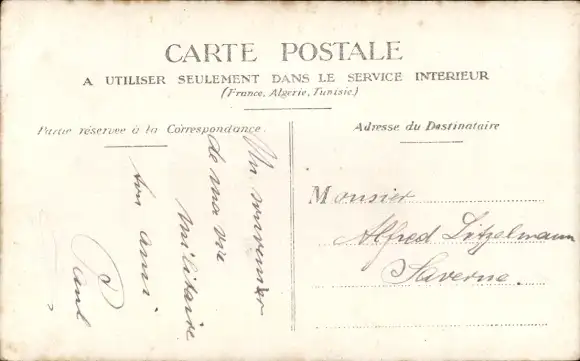 CARTE POSTALE
A UTILISER SEULEMENT DANS LE SERVICE INTERIEUR
(France, Algerie, Tunisie.)
Partie réservée à la Correspondance.
Adresse du Destinataire
Un souvenier
de ma vie
militaire
ton ami.
Paul
Monsier
Alfred Litzelmann
Saverne.